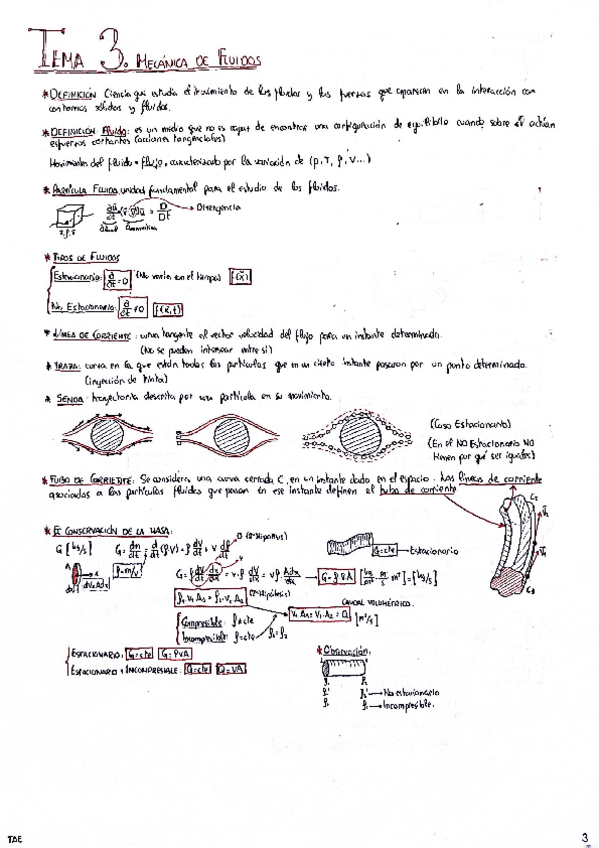 TEMA 3. MECÁNICA DE FLUIDOS
* DEFINICIÓN Ciencia que estudia el movimiento de los fluidos y las fuerzas que aparecen en la interacción con
contornos sólidos y fluidos.
* DEFINICIÓN Fluido: es un medio que no es capaz de encontrar una configuración de equilibrio cuando sobre él actúan
esfuerzos cortantes (acciones tangenciales)
Movimientos del fluido = flujo, caracterizado por la variación de (p, T, ρ, V...)
* PARTÍCULA FLUIDA, unidad fundamental para el estudio de los fluidos.
→ Divergencia
* TIPOS DE FLUIDOS
Estacionario: ∂/∂t = 0 (No varía en el tiempo) f(x̄)
No Estacionario: ∂/∂t ≠ 0 f(x̄,t)
* LÍNEA DE CORRIENTE: curva tangente al vector velocidad del flujo para un instante determinado.
(No se pueden intersecar entre sí)
* TRAZA: curva en la que están todas las partículas que en un cierto instante pasaron por un punto determinado.
(inyección de tinta)
* SENDA: trayectoria descrita por una partícula en su movimiento.
(Caso Estacionario)
(En el NO Estacionario NO
tienen por qué ser iguales)
* TUBO DE CORRIENTE: Se considera una curva cerrada C, en un instante dado en el espacio. Las líneas de corriente
asociadas a las partículas fluidas que pasan en ese instante definen el tubo de corriente
* EC CONSERVACIÓN DE LA MASA:
G [kg/s] G = dm/dt = d/dt (ρV) = ρ dV/dt + V dρ/dt
G=cte → Estacionario
ρ=m/V
→ G=ρVA
ρ₁V₁A₁ = ρ₂V₂A₂
CAUDAL VOLUMÉTRICO.
V₁A₁ = V₂A₂ = Q [m³/s]
Compresible: ρ≠cte
Incompresible: ρ=cte ρ₁=ρ₂
ESTACIONARIO: G=cte G=ρVA
ESTACIONARIO + INCOMPRESIBLE: G=cte Q=VA
* Observación:
→ No estacionario
→ Incompresible.
TDE
3